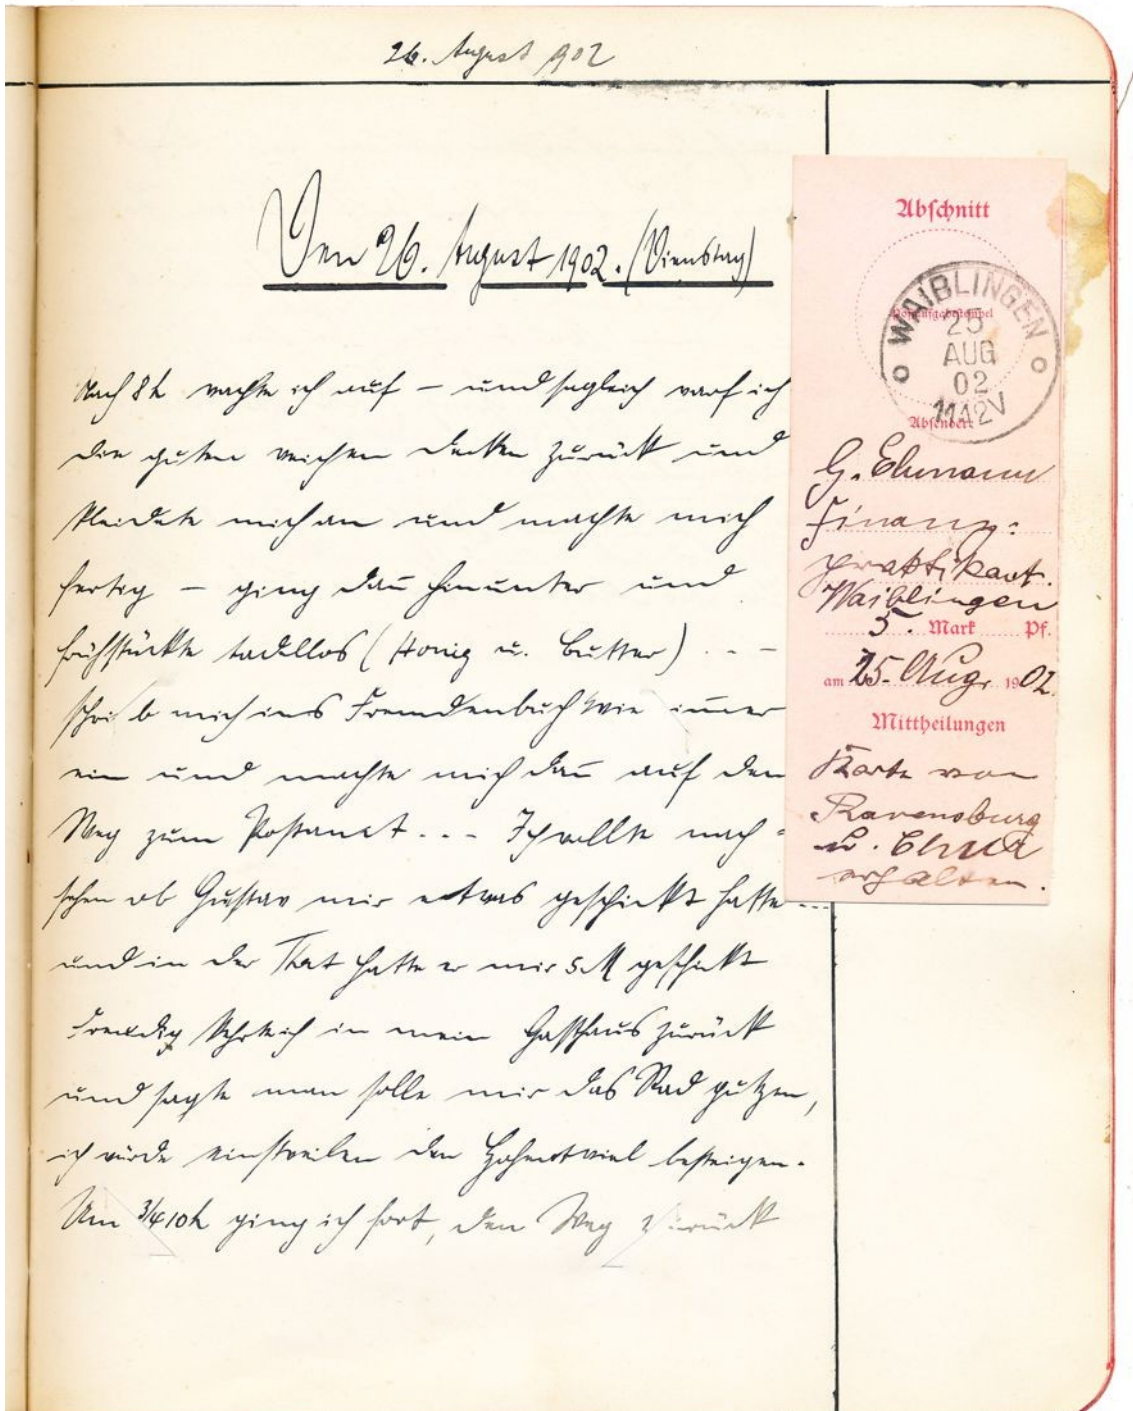 26. August 902
Den 26. August 1902. (Dienstag)
Nach 8h wachte ich auf – und sogleich warf ich
die guten weichen Decken zurück und
kleidete mich an und machte mich
fertig – ging dan̄ hinunter und
frühstückte tadellos (Honig u. Butter) . - -
schrieb mich ins Fremdenbuch wie im̄er
ein und machte mich dan̄ auf den
Weg zum Postamt . . – Ich wollte nach=
sehen ob Gustav mir etwas geschickt hatte ...
und in der That hatte er mir 5 M geschickt
Freudig kehrte ich in mein Gasthaus zurück
und sagte man solle mir das Rad putzen,
ich würde einstweilen den Hohentwiel besteigen.
Um 3/4 10h ging ich fort, den Weg zurück
Abschnitt
Postaufgabestempel
WAIBLINGEN
25
AUG
02
1112V
Absender:
G. Ehmann
Finanz=
praktikant.
Waiblingen
5. Mark Pf.
am 25. Aug. 1902.
Mittheilungen
Karte von
Ravensburg
u. Chur
erhalten.